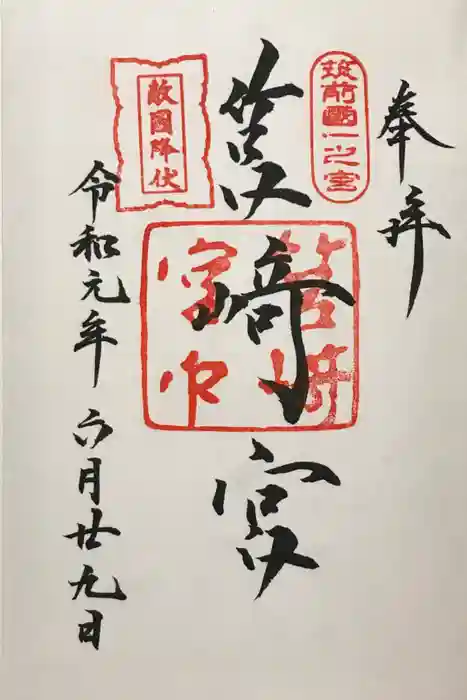 奉拝
筑前國一之宮
筥﨑宮
筥崎
宮印
敵國降伏
令和元年六月廿九日